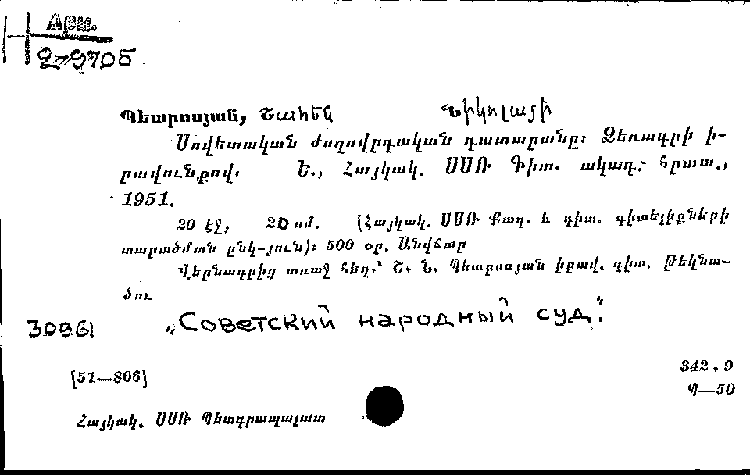 Արմ.
2-9705
Պետրոսյան, Շահեն Նիկոլայի
Սովետական ժողովրդական դատարանը: Ձեռագրի ի-
րավունքով. Ե., Հայկակ. ՍՍՌ Գիտ. ակադ. հրատ.,
1951.
20 էջ, 20 սմ. (Հայկակ. ՍՍՌ Քաղ. և գիտ. գիտելիքների
տարածման ընկ-յուն): 500 օր. Անվճար
Վերնագրից առաջ հեղ.՝ Շ. Ն. Պետրոսյան իրավ. գիտ. թեկնա-
ծու
30861 „Советский народный суд."
[51—806] 342.9
Պ—50
Հայկակ. ՍՍՌ Պետգրապալատ